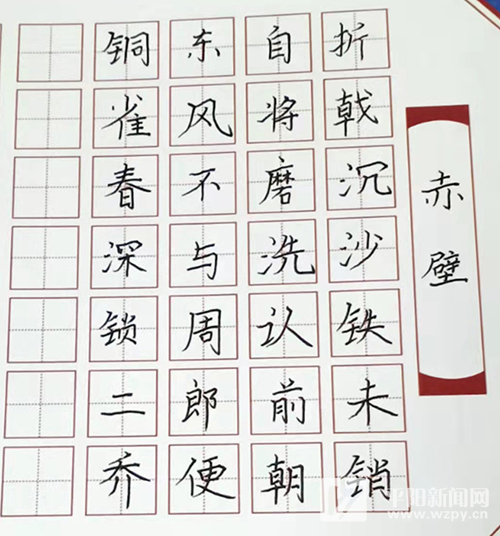 赤壁
折戟沉沙铁未销
自将磨洗认前朝
东风不与周郎便
铜雀春深锁二乔
平阳新闻网
www.wzpy.cn